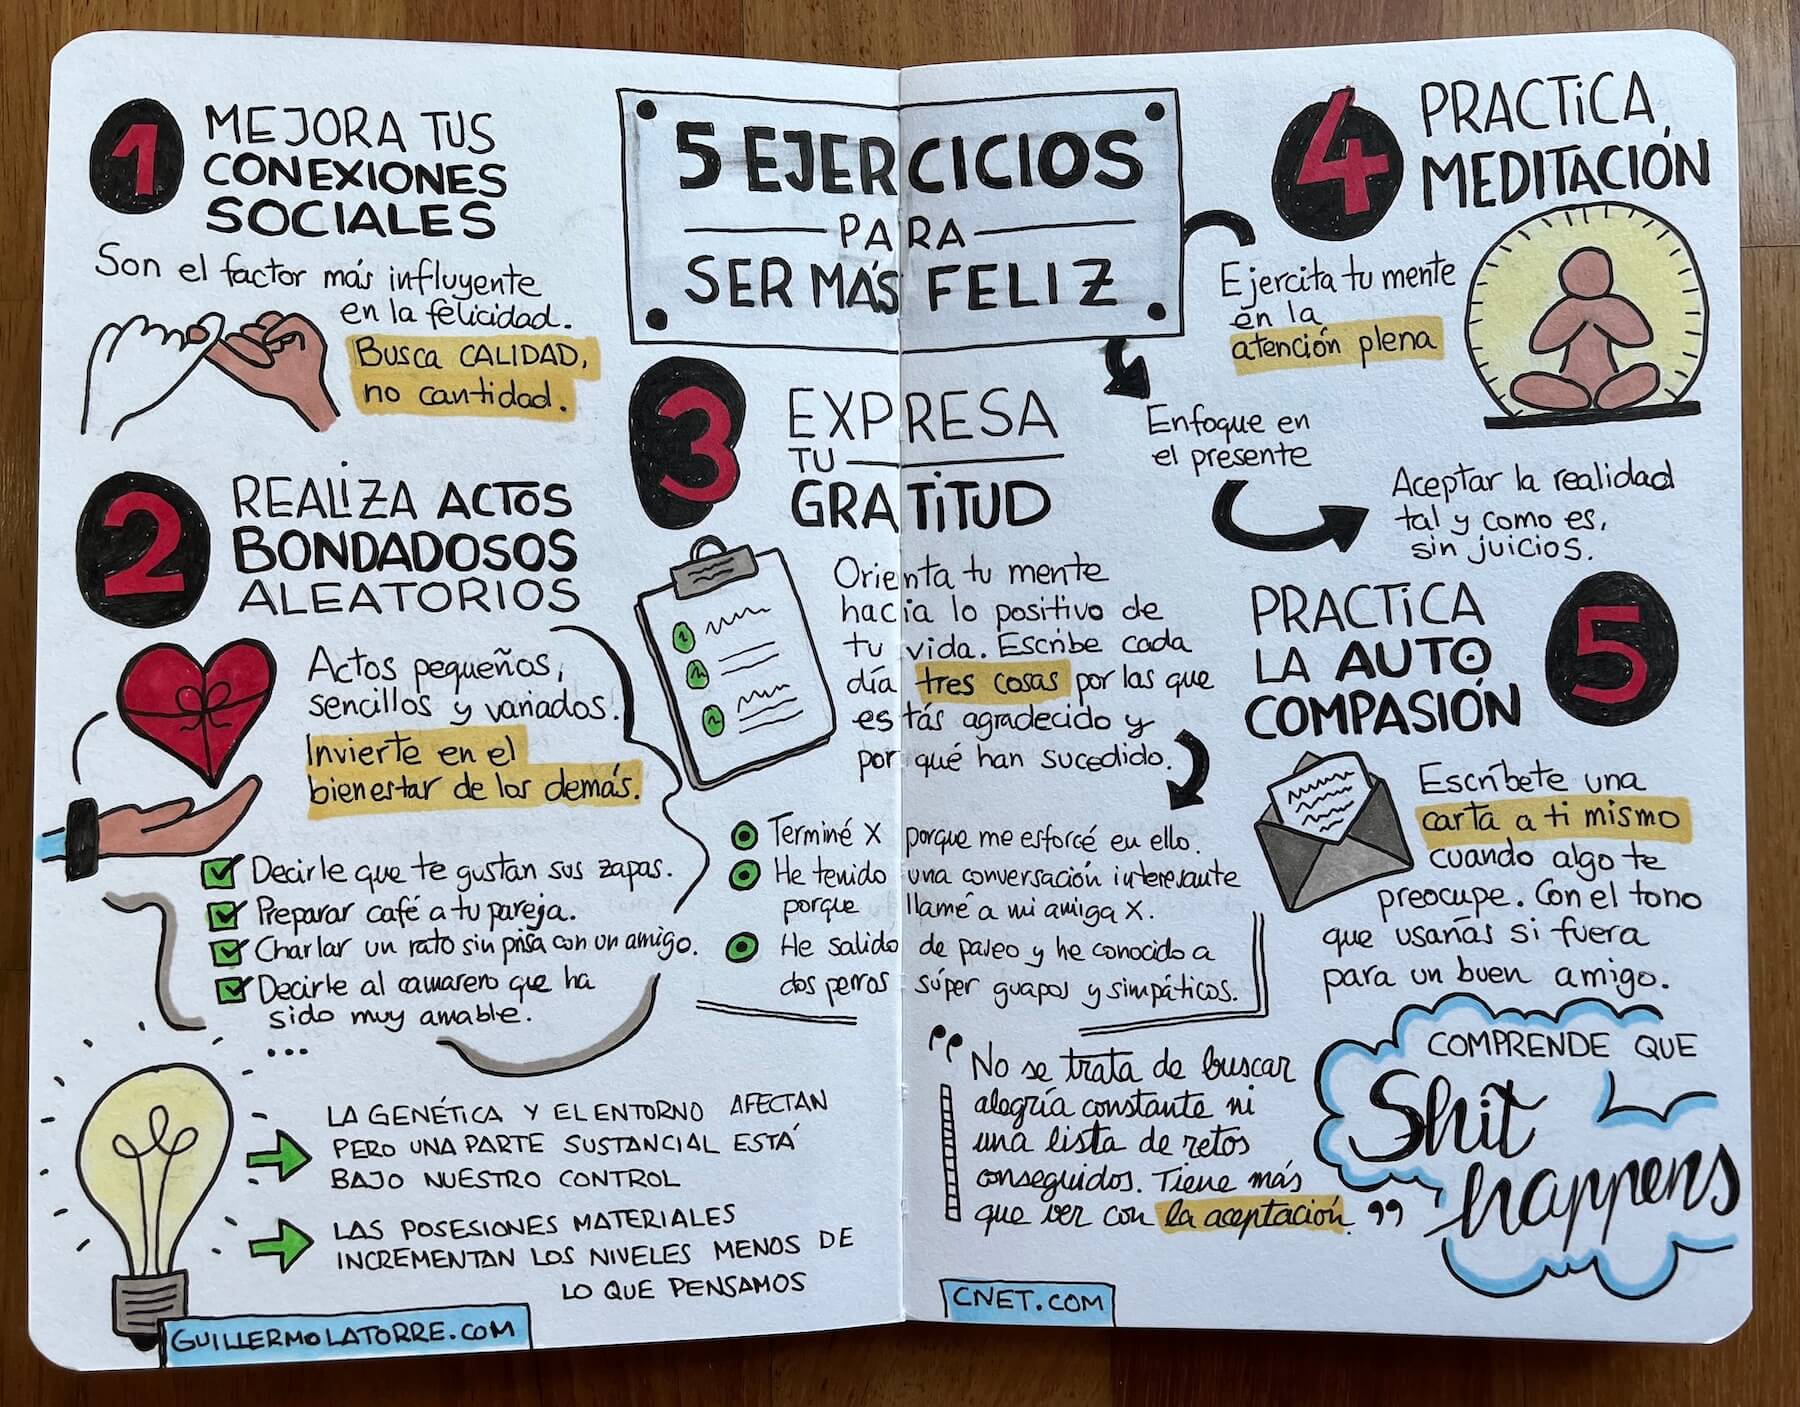 5 EJERCICIOS
PARA
SER MÁS FELIZ
1
MEJORA TUS
CONEXIONES
SOCIALES
Son el factor más influyente
en la felicidad.
Busca CALIDAD,
no cantidad.
2
REALIZA ACTOS
BONDADOSOS
ALEATORIOS
Actos pequeños,
sencillos y variados.
Invierte en el
bienestar de los demás.
Decirle que te gustan sus zapas.
Preparar café a tu pareja.
Charlar un rato sin prisa con un amigo.
Decirle al camarero que ha
sido muy amable.
...
LA GENÉTICA Y EL ENTORNO AFECTAN
PERO UNA PARTE SUSTANCIAL ESTÁ
BAJO NUESTRO CONTROL
LAS POSESIONES MATERIALES
INCREMENTAN LOS NIVELES MENOS DE
LO QUE PENSAMOS
GUILLERMOLATORRE.COM
3
EXPRESA
TU
GRATITUD
Orienta tu mente
hacia lo positivo de
tu vida. Escribe cada
día tres cosas por las que
estás agradecido y
por qué han sucedido.
Terminé X porque me esforcé en ello.
He tenido una conversación interesante
porque llamé a mi amiga X.
He salido de paseo y he conocido a
dos perros súper guapos y simpáticos.
"No se trata de buscar
alegría constante ni
una lista de retos
conseguidos. Tiene más
que ver con la aceptación."
CNET.COM
4
PRACTICA
MEDITACIÓN
Ejercita tu mente
en la
atención plena
Enfoque en
el presente
Aceptar la realidad
tal y como es,
sin juicios.
5
PRACTICA
LA AUTO
COMPASIÓN
Escríbete una
carta a ti mismo
cuando algo te
preocupe. Con el tono
que usarías si fuera
para un buen amigo.
COMPRENDE QUE
Shit
happens